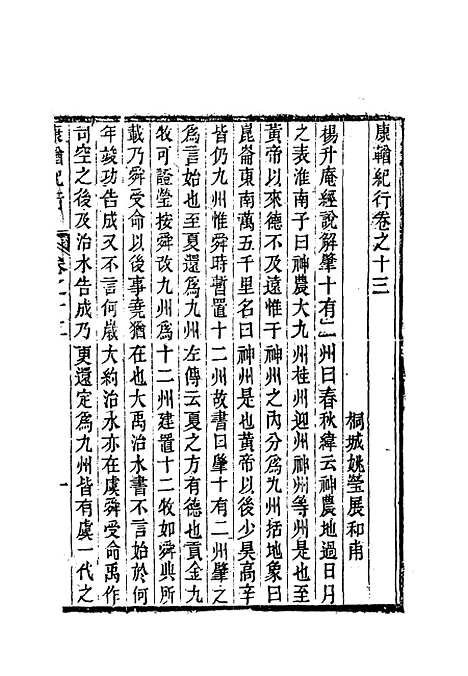 康輶紀行卷之十三
桐城姚瑩展和甫
楊升庵經說解肇十有二州曰春秋緯云神農地過日月
之表淮南子曰神農大九州桂州迎州神州等州是也至
黃帝以來德不及遠惟于神州之內分爲九州括地象曰
崑崙東南萬五千里名曰神州是也黃帝以後少昊高辛
皆仍九州惟舜時暫置十二州故書曰肇十有二州肇之
爲言始也至夏還爲九州左傳云夏之方有德也貢金九
牧可證瑩按舜改九州爲十二州建置十二牧如舜典所
載乃舜受命以後事堯猶在也大禹治水書不言始於何
年竣功告成又不言何歲大約治水亦在虞舜受命禹作
司空之後及治水告成乃更還定爲九州皆有虞一代之
康輶紀行
卷之十三
一